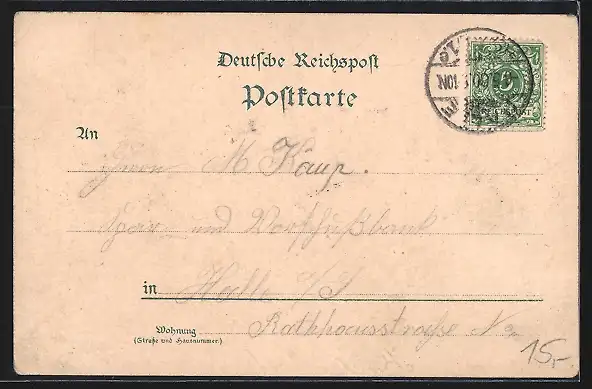 Deutsche Reichspost
Postkarte
An
Herrn M Kaup.
Spar- und Vorschußbank
in Halle a/S
Wohnung
(Straße und Hausnummer.)
Rathhausstraße No
15,-